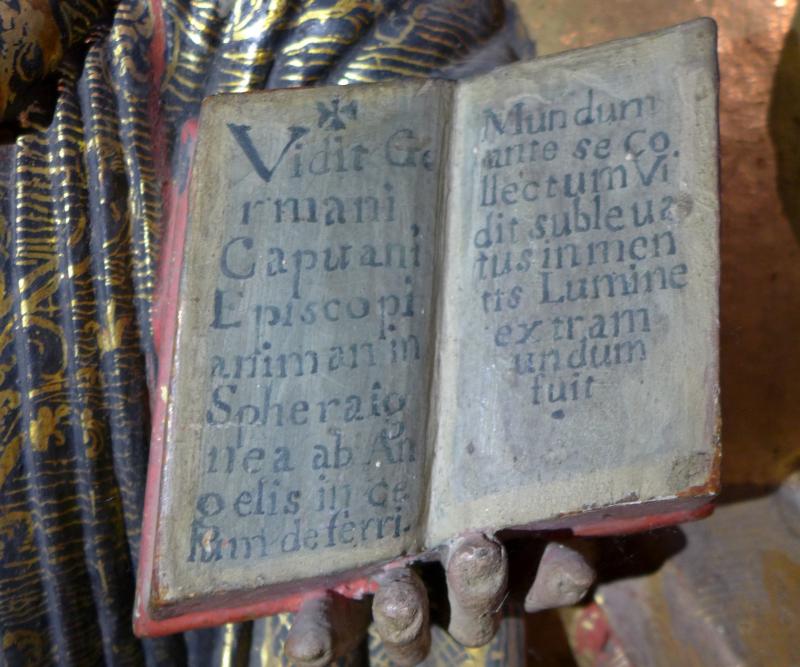 Vidit Ge
rmani
Capuani
Episcopi
animan in
Spheraig
nea ab An
gelis in ce
lum deferri.
Mundum
ante se Co
llectum Vi
dit subleua
tus in men
tis Lumine
extram
undum
fuit